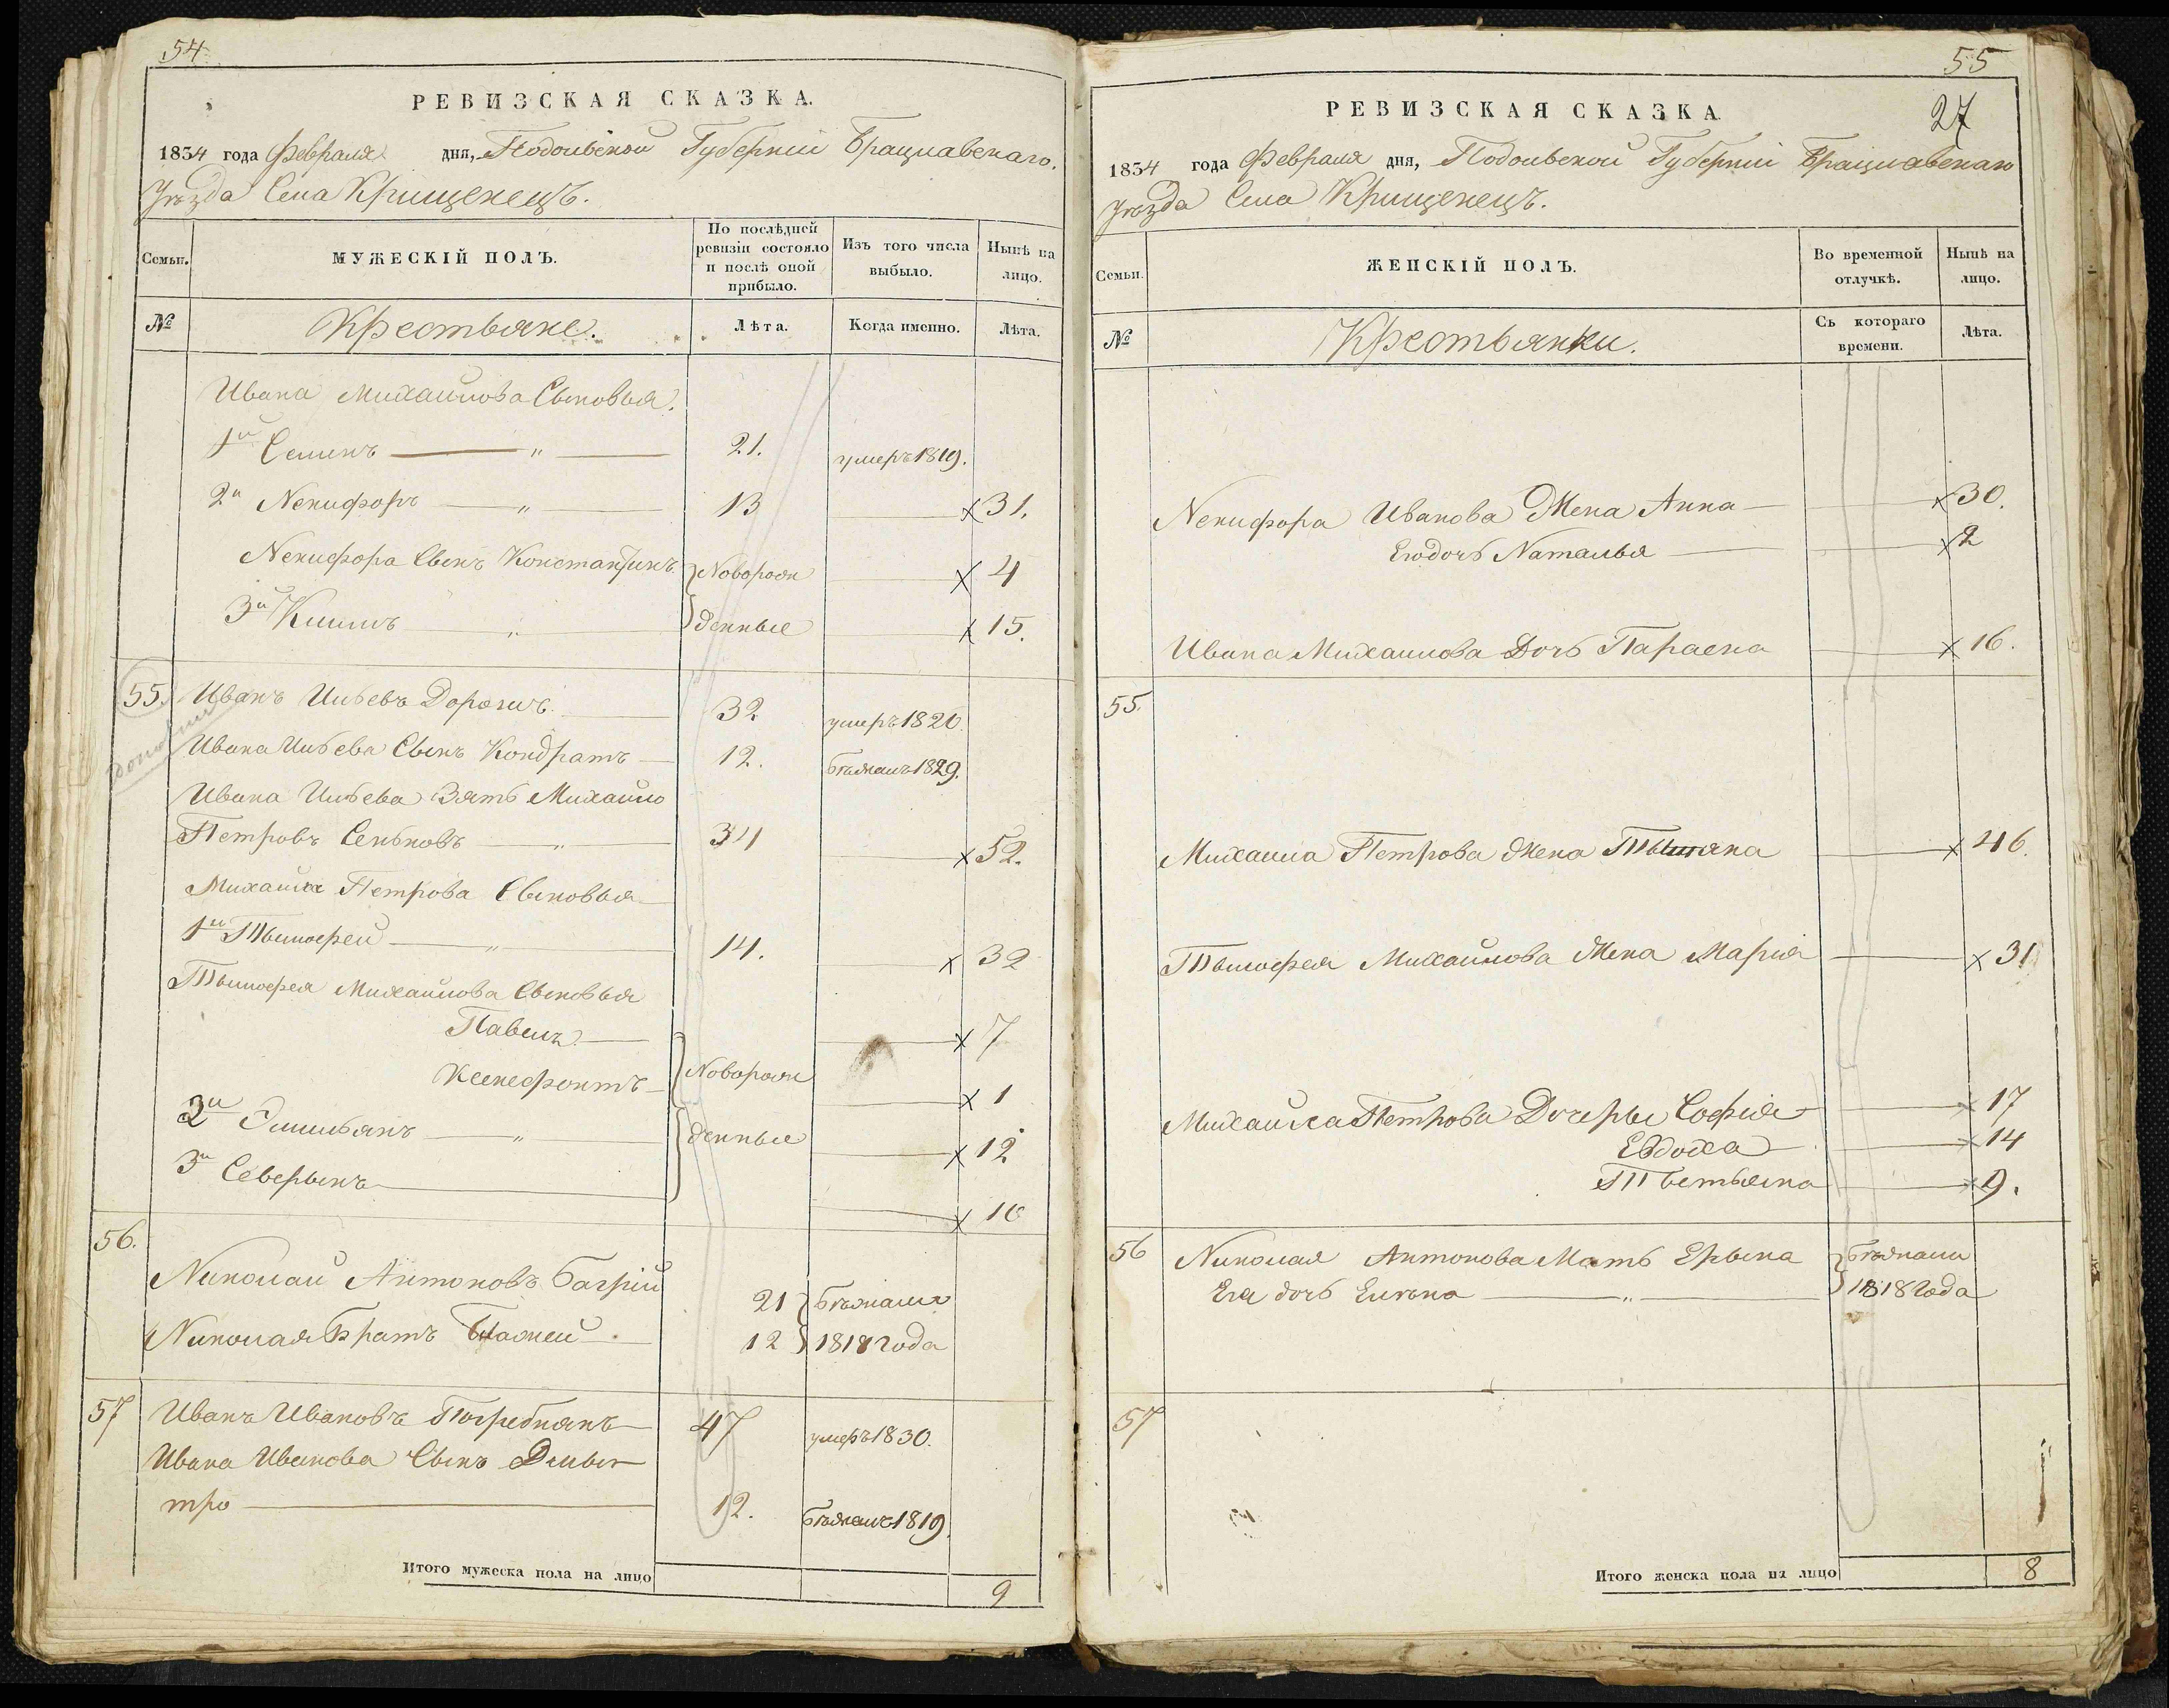 54
РЕВИЗСКАЯ СКАЗКА.
1834 года Февраля дня, Подольской Губерніи Брацлавскаго
Уѣзда Села Крищенецъ.
Семьи.
МУЖЕСКІЙ ПОЛЪ.
По послѣдней ревизіи состояло и послѣ оной прибыло.
Изъ того числа выбыло.
Нынѣ на лицо.
№
Крестьяне.
Лѣта.
Когда именно.
Лѣта.
Ивана Михайлова Сыновья.
1й Семенъ — " — 21. умеръ 1819.
2й Никифоръ — " — 13 — х 31.
Никифора Сынъ Константинъ Новорож — х 4
3й Климъ — " — денные — х 15.
55. Иванъ Ильевъ Дорошъ. — 32 умеръ 1820.
Ивана Ильева Сынъ Кондратъ — 12. бѣжалъ 1829.
Ивана Ильева Зять Михайло
Петровъ Сеньковъ — " — 34 — х 52.
Михайла Петрова Сыновья
1й Тымофей — " — 14. — х 32
Тымофея Михайлова Сыновья
Павелъ — х 7
Ксенефонтъ — Новорож — х 1
2й Эмильянъ — " — денные — х 12
3й Северынъ — х 10
56.
Николай Антоновъ Багрій 21 бѣжали
Николая Братъ Блажей — 12 1818 года
57 Иванъ Ивановъ Погребнякъ — 47 умеръ 1830.
Ивана Иванова Сынъ Дмы
тро — 12. бѣжалъ 1819.
Итого мужеска пола на лицо 9
55
27
РЕВИЗСКАЯ СКАЗКА
1834 года Февраля дня, Подольской Губерніи Брацлавскаго
Уѣзда Села Крищенецъ.
Семьи.
ЖЕНСКІЙ ПОЛЪ.
Во временной отлучкѣ.
Нынѣ на лицо.
№
Крестьянки.
Съ котораго времени.
Лѣта.
Никифора Иванова Жена Анна — х 30.
Его дочь Наталья — х 2
Ивана Михайлова Дочь Параска — х 16.
55.
Михайла Петрова Жена — х 46.
Тымофея Михайлова Жена Марія — х 31
Михайла Петрова Дочеры Софія — х 17
Евдоха — х 14
Тетьяна — х 9.
56 Николая Антонова Мать Ерына бѣжали
Ея дочь Елена — " — 1818 года
57
Итого женска пола на лицо 8